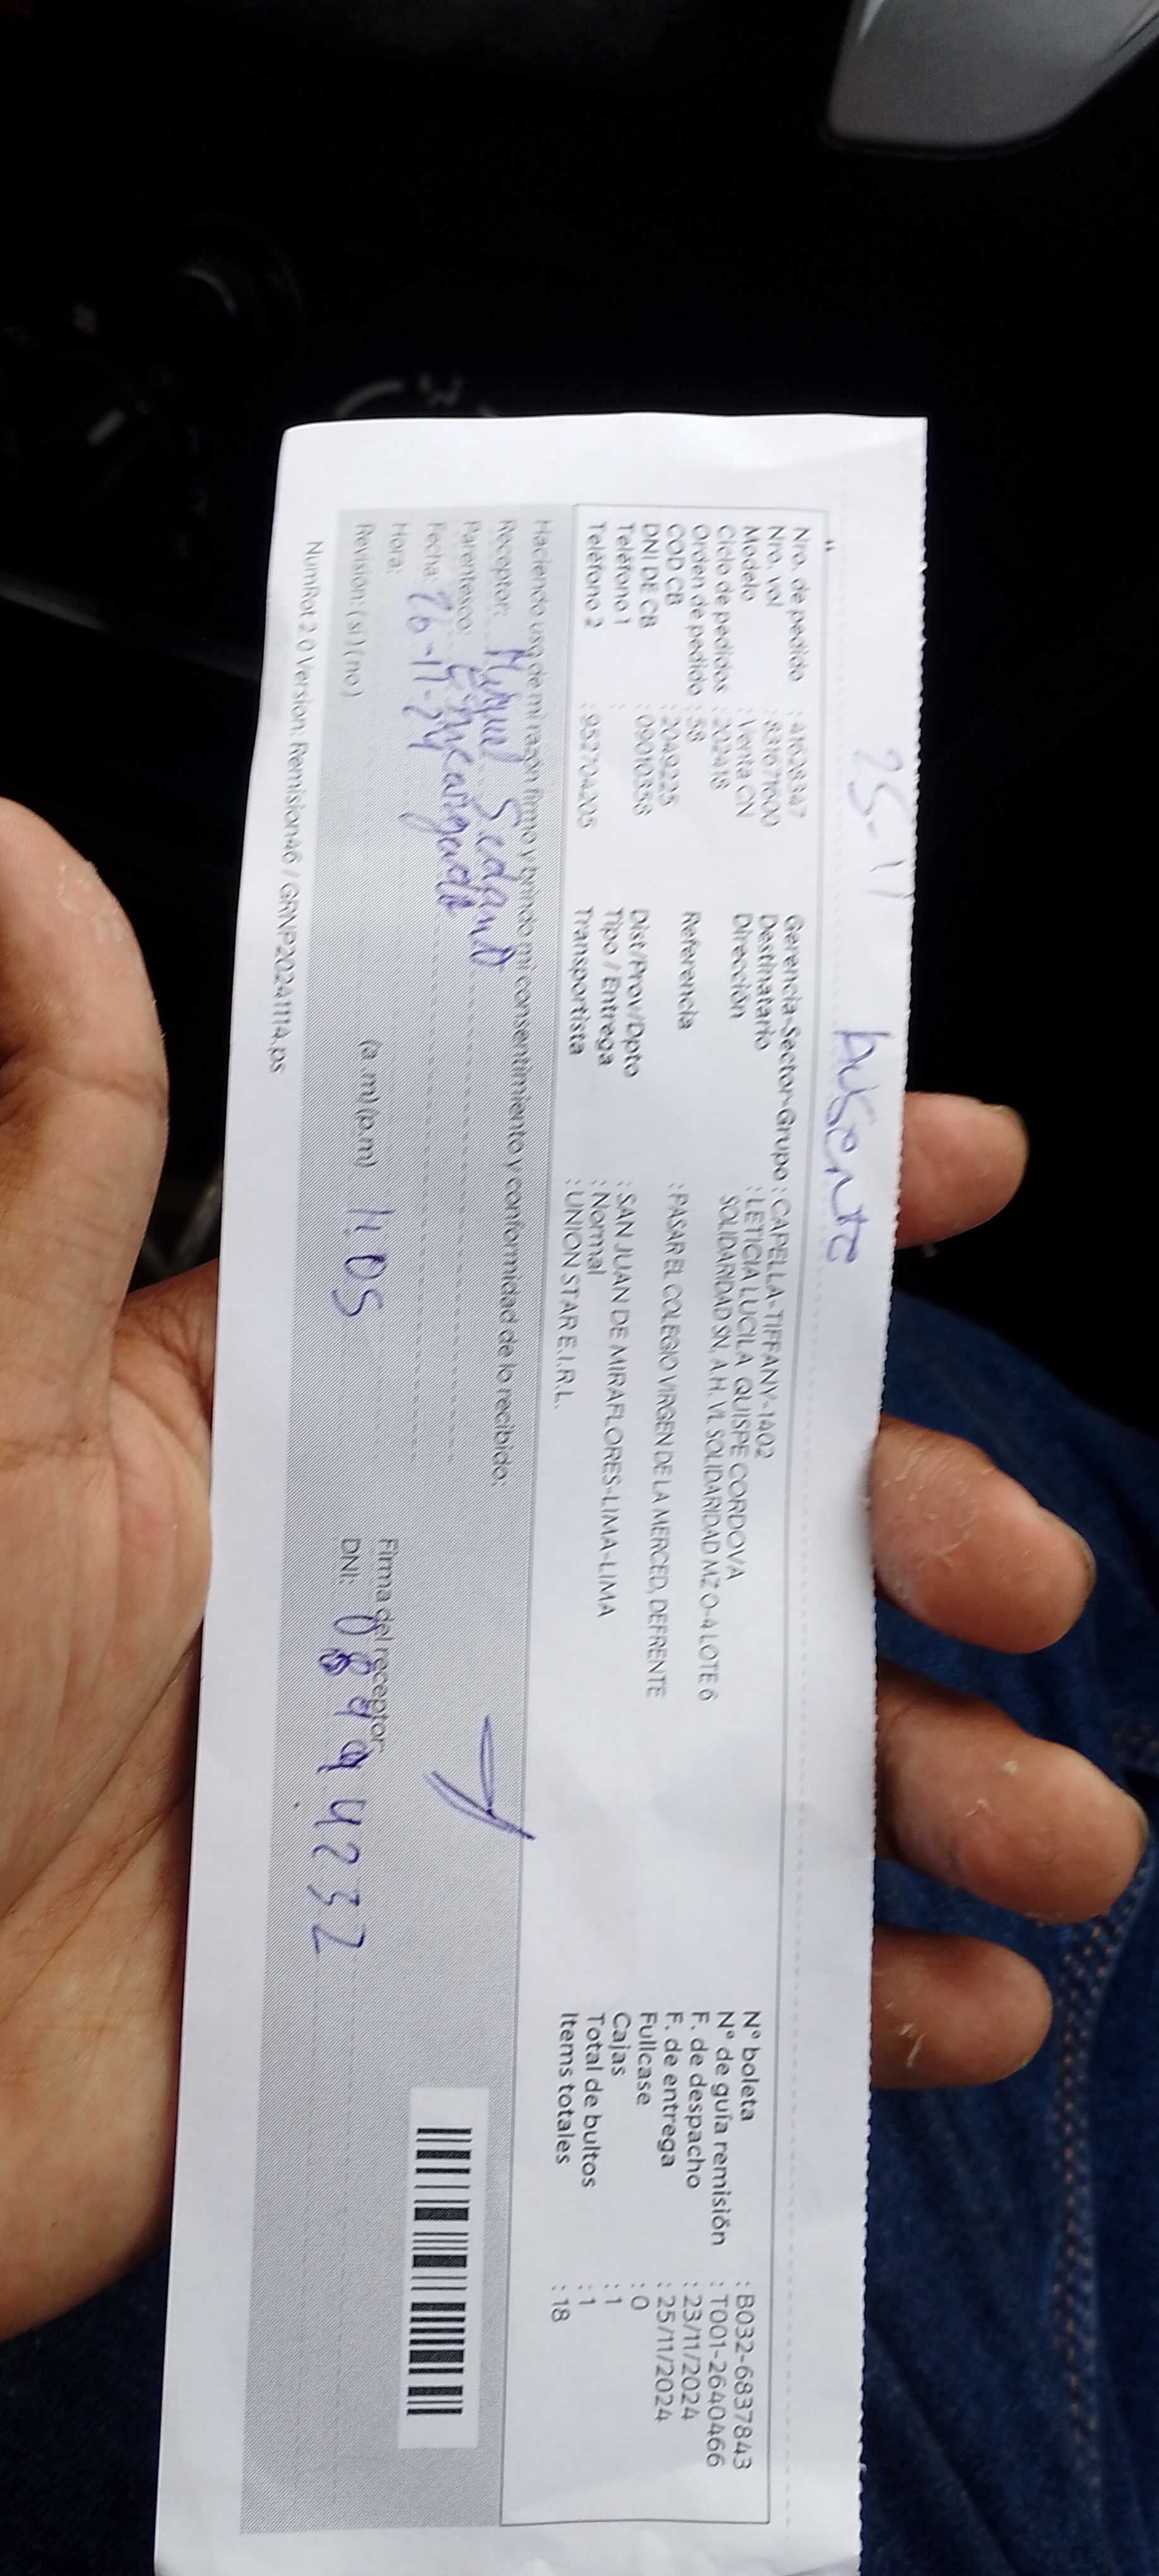 25-11 Ausente
Nro. de pedido : 41628347
Nro. vol : 831671600
Modelo : Venta CN
Ciclo de pedidos : 202418
Orden de pedido : 58
COD CB : 2049225
DNI DE CB : 09010358
Teléfono 1 :
Teléfono 2 : 952704205
Gerencia-Sector-Grupo : CAPELLA-TIFFANY-1402
Destinatario : LETICIA LUCILA QUISPE CORDOVA
Dirección SOLIDARIDAD SN, A.H. VL SOLIDARIDAD MZ O-4 LOTE 6
Referencia : PASAR EL COLEGIO VIRGEN DE LA MERCED, DEFRENTE
Dist/Prov/Dpto : SAN JUAN DE MIRAFLORES-LIMA-LIMA
Tipo / Entrega : Normal
Transportista : UNION STAR E.I.R.L.
N° boleta : B032-6837843
N° de guía remisión : T001-2640466
F. de despacho : 23/11/2024
F. de entrega : 25/11/2024
Fullcase : 0
Cajas : 1
Total de bultos : 1
Items totales : 18
Haciendo uso de mi razón firmo y brindo mi consentimiento y conformidad de lo recibido:
Receptor: Miguel Sedano
Parentesco: Encargado
Fecha: 26-11-24
Hora: (a.m) (p.m) 11.05
Revisión: (si) (no)
Firma del receptor:
DNI: 08994232
NumRot 2.0 Version: Remision46 / GRNP20241114.ps